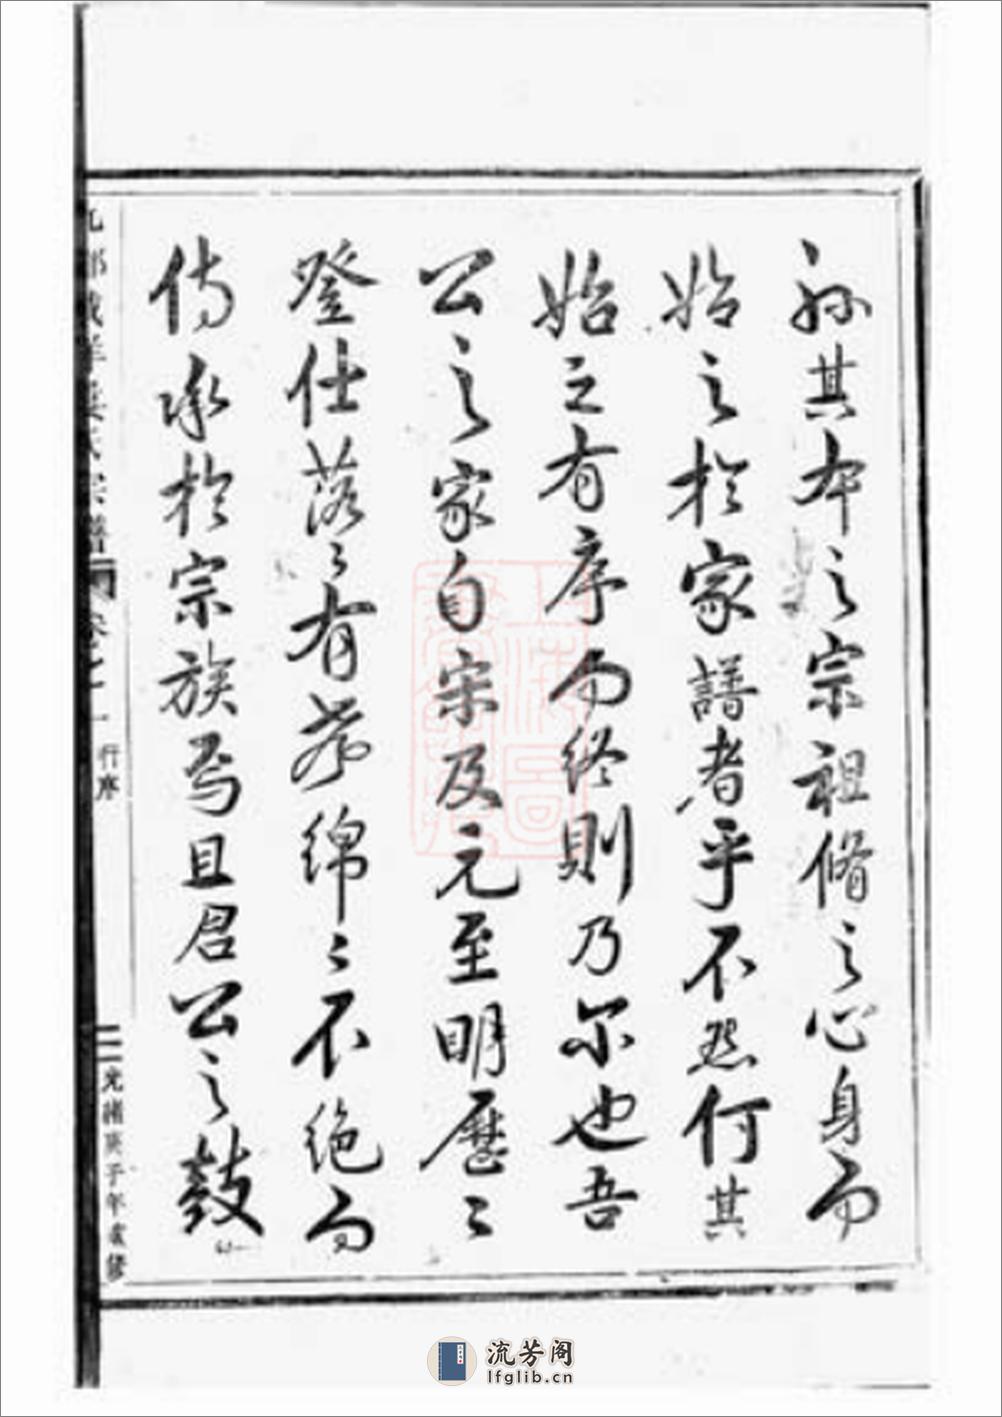 孫其本之宗祖脩之心身而
始之於家譜者乎不然何其
始之有序而終則乃尔也吾
公之家自宋及元至明歷々
登仕落々有考綿々不絕而
傳承於宗族焉且君公之鼓
氏宗譜
卷之一
行序
光緒庚子年重修
流芳阁
lfglib.cn